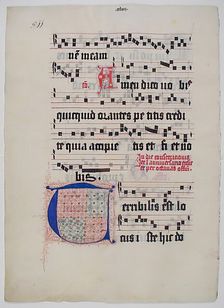 nē meam
Amen dico vo bis
quicquid orantes pe titis credi
te quia accipie tis et fi et vo
bis
In die consecrationis
T erribilis est lo
cus i ste hic do